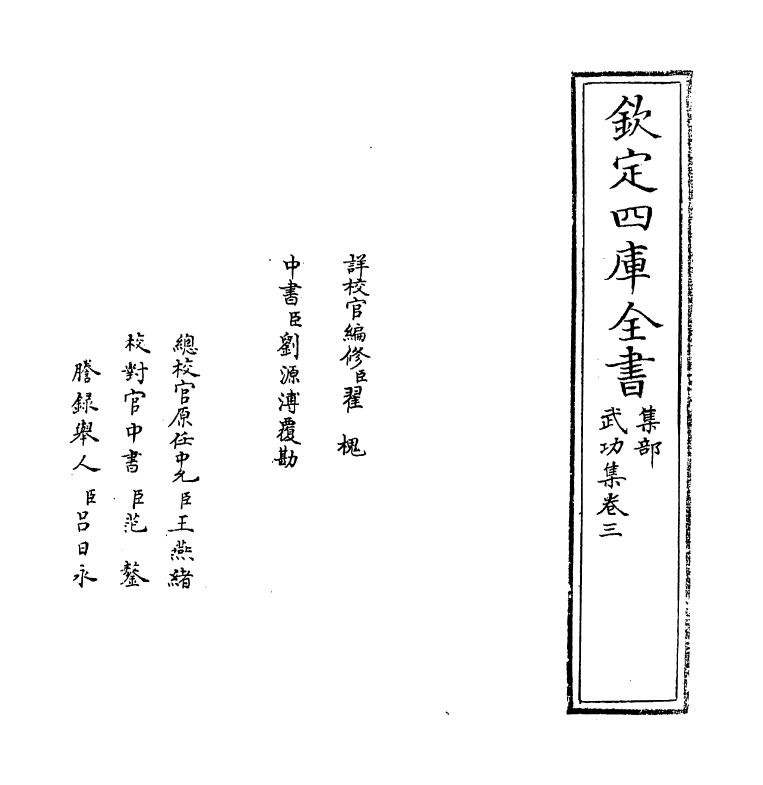 欽定四庫全書
集部
武功集卷三
詳校官編修臣翟槐
中書臣劉源溥覆勘
總校官原任中允臣王燕緒
校對官中書臣范鏊
謄錄舉人臣呂日永